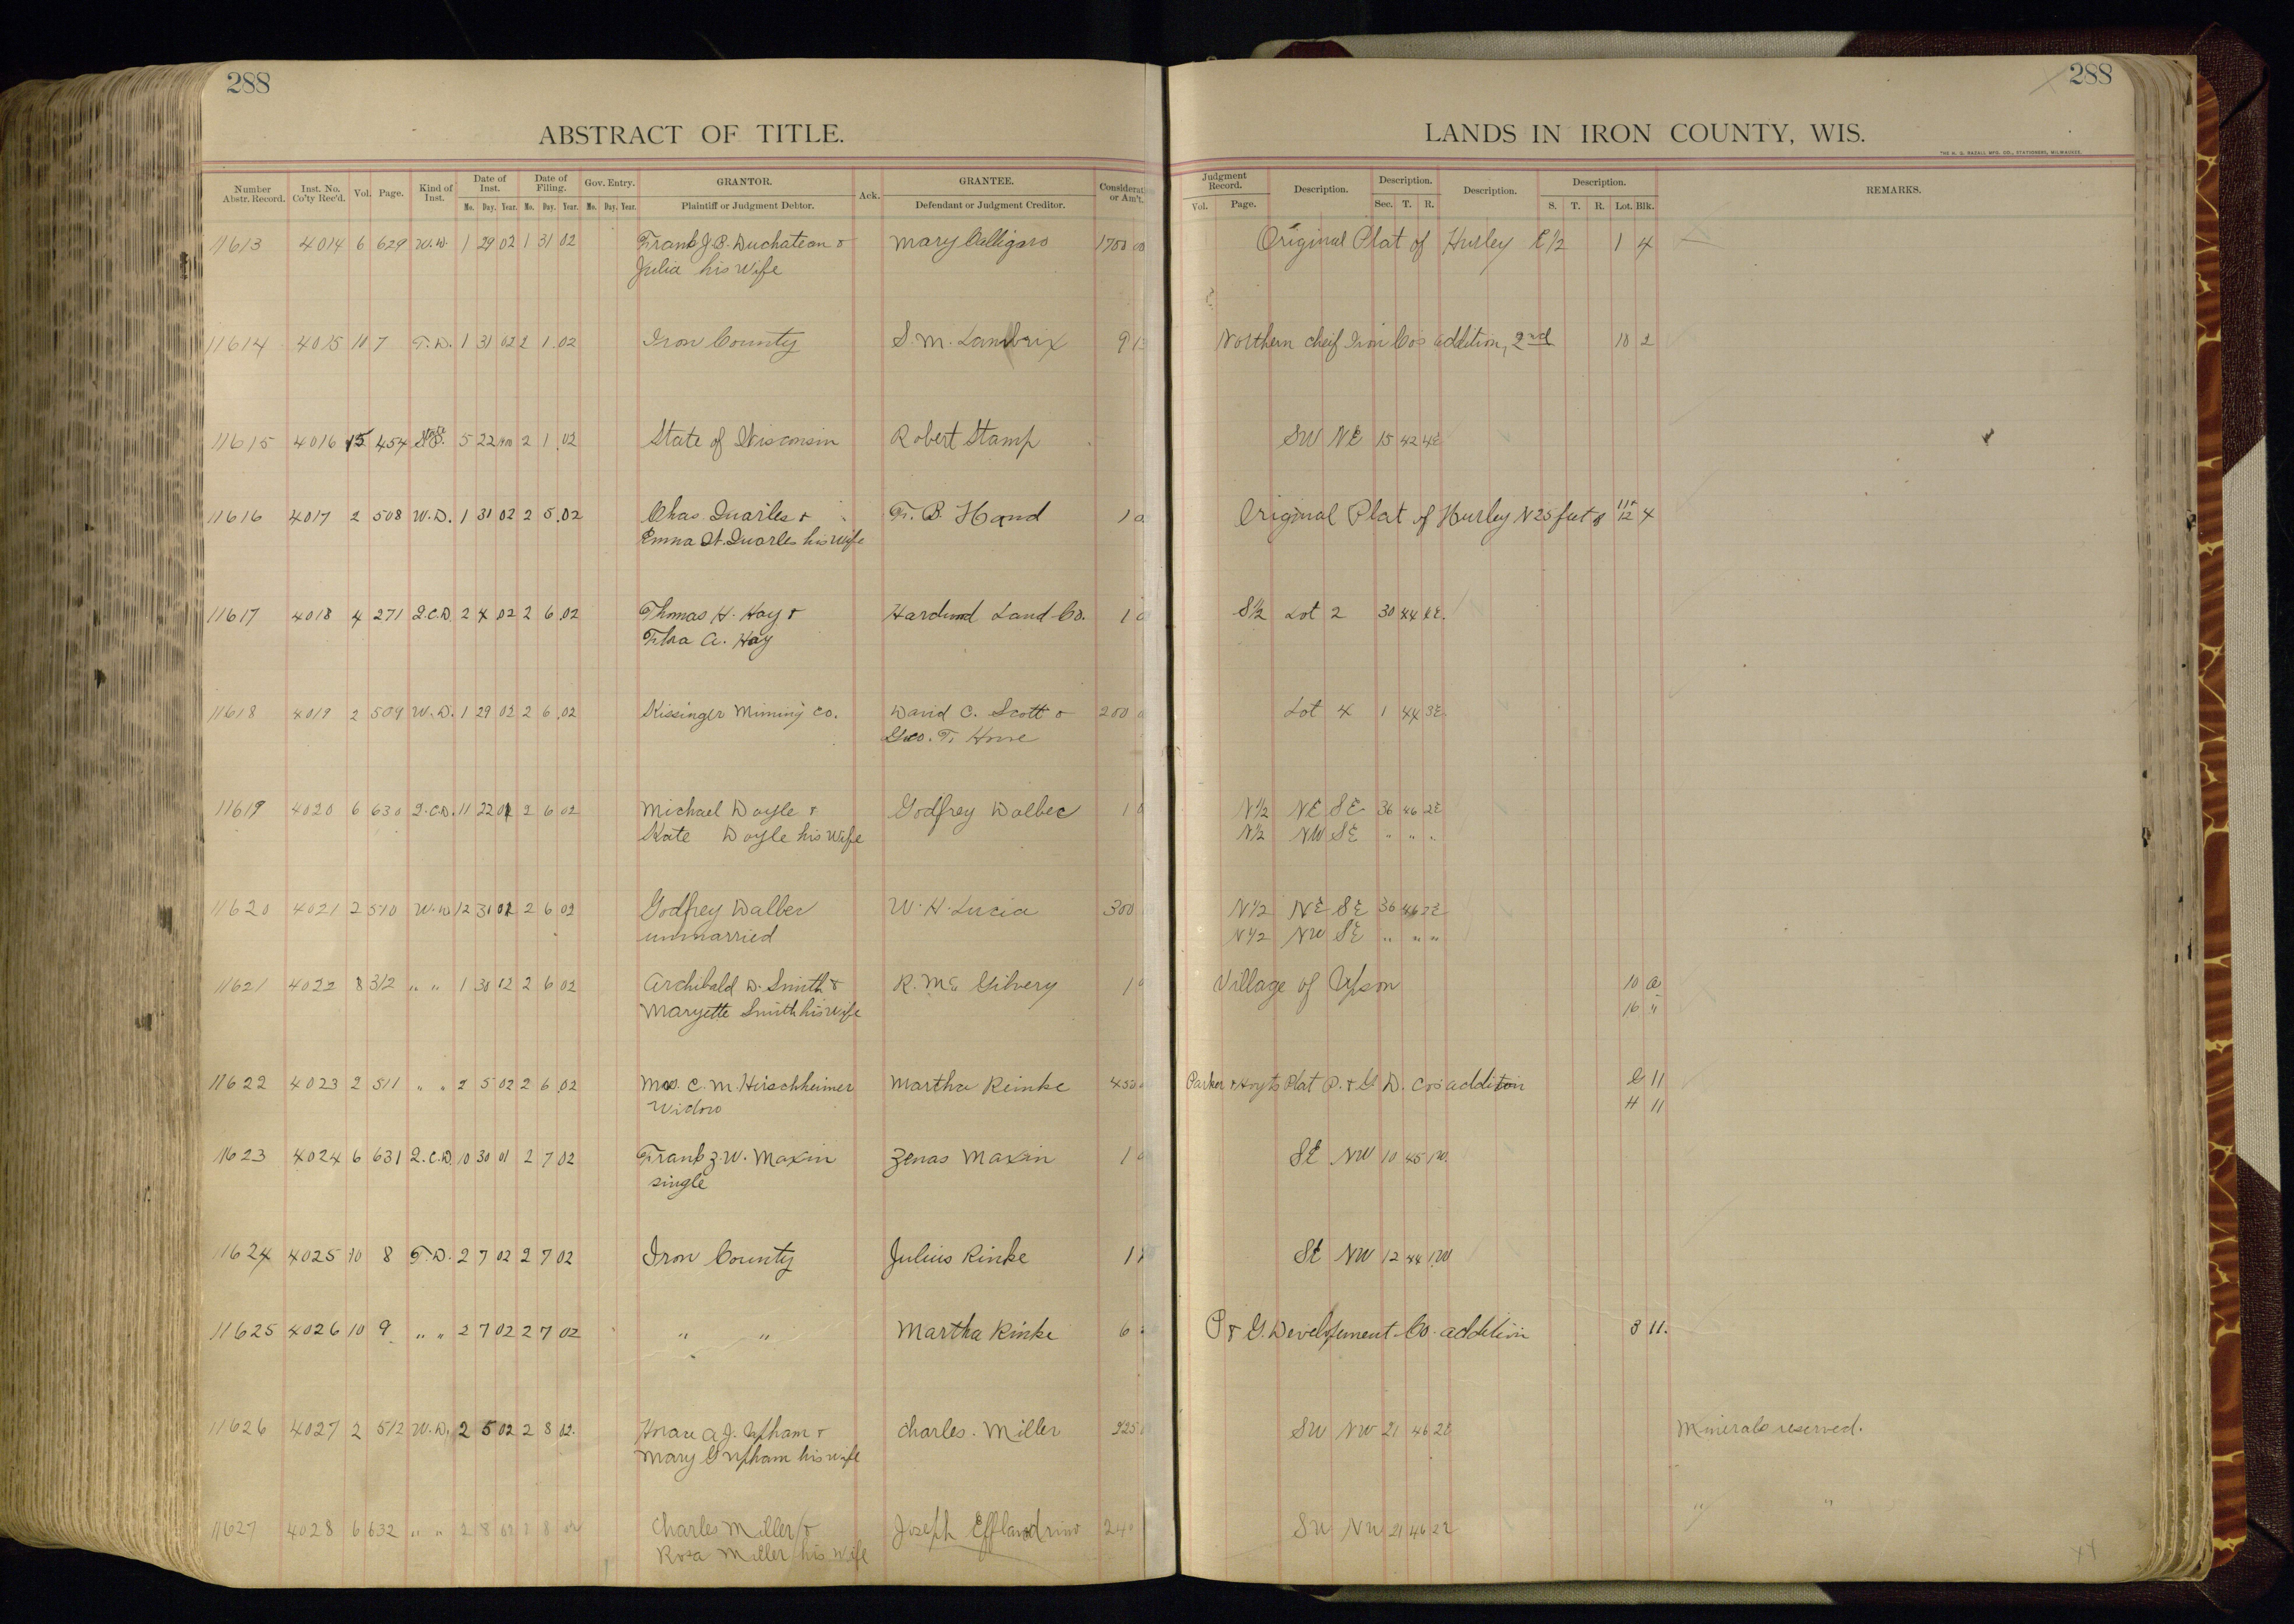 288
288
ABSTRACT OF TITLE.
LANDS IN IRON COUNTY, WIS.
THE H. G. RAZALL MFG. CO., STATIONERS, MILWAUKEE.
Number Abstr. Record. Inst. No. Co'ty Rec'd. Vol. Page. Kind of Inst. Date of Inst. Mo. Day. Year. Date of Filing. Mo. Day. Year. Gov. Entry. Mo. Day. Year. GRANTOR. Plaintiff or Judgment Debtor. Ack. GRANTEE. Defendant or Judgment Creditor. Considerat or Am't. Judgment Record. Vol. Page. Description. Description. Sec. T. R. Description. Description. S. T. R. Lot. Blk. REMARKS.
11613 4014 6 629 W.D. 1 29 02 1 31 02 Frank J.B. Duchatean & Mary Calligaro 1700 00 Original Plat of Hurley E 1/2 1 4
Julia his Wife
11614 4015 10 7 T.D. 1 31 02 2 1 02 Iron County S. M. Lambrix 9 Northern cheif Iron Co's addition, 2nd 10 2
11615 4016 15 454 State P. 5 22 2 1 02 State of Wisconsin Robert Stamp SW NE 15 42 4E
11616 4017 2 508 W.D. 1 31 02 2 5 02 Chas Quarles & F. B. Hand 1 Original Plat of Hurley N 25 feet of 11+ 12 4
Emma W. Quarles his Wife
11617 4018 4 271 Q.C.D. 2 4 02 2 6 02 Thomas H. Hay & Land Co. 1 S 1/2 Lot 2 30 44
A. Hay
11618 4019 2 509 W.D. 1 29 02 2 6 02 Kissinger Mining Co. David C. Scott & 200 Lot 4 1 44 3E.
Geo. T.
11619 4020 6 630 Q.C.D. 11 22 01 2 6 02 Michael Doyle & Godfrey Dalbec 1 N 1/2 NE SE 36 46 2E
Kate Doyle his Wife N 1/2 NW SE " " "
11620 4021 2 510 W.D. 12 31 01 2 6 02 Godfrey Dalbec W. H. Lucia 300 N 1/2 NE SE 36 46 2E
unmarried N 1/2 NW SE " " "
11621 4022 8 312 " " 1 30 02 2 6 02 Archibald D. Smith & R. Mc Gilvery 1 Village of Upson 10 a
Maryette Smith his Wife 16 "
11622 4023 2 511 " " 2 5 02 2 6 02 Mrs. C. M. Hirschheimer Martha Reinke 450 Parker & Hoyts Plat P. & G. D. Co's addition G 11
Widow H 11
11623 4024 6 631 Q.C.D. 10 30 01 2 7 02 Frank Z. W. Maxin Zenas Maxin 1 SE NW 10 45 1W.
single
11624 4025 10 8 T.D. 2 7 02 2 7 02 Iron County Julius Rinke SE NW 12 44 1W
11625 4026 10 9 " " 2 7 02 2 7 02 " " Martha Rinke 6 P & G. Development Co. addition 3 11.
11626 4027 2 512 W.D. 2 5 02 2 8 02. Horace A. J. Upham & Charles. Miller 225 SW NW 21 46 2E Minerals reserved.
Mary G Upham his wife
11627 4028 6 632 " " 2 8 02 2 8 02 Charles Miller & Joseph 240 SW NW 21 46 2E " "
Rosa Miller his wife